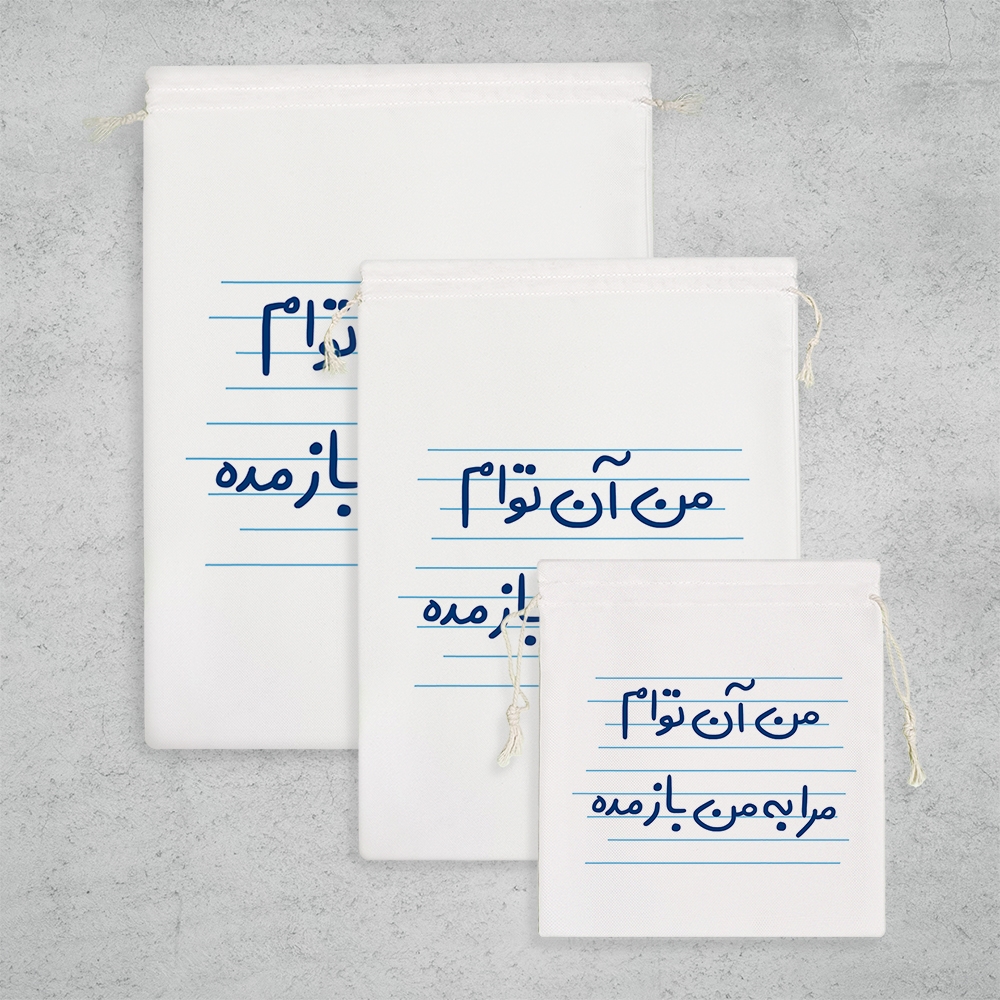 توام
باز مده
من آن توام
باز مده
من آن توام
مرا به من باز مده